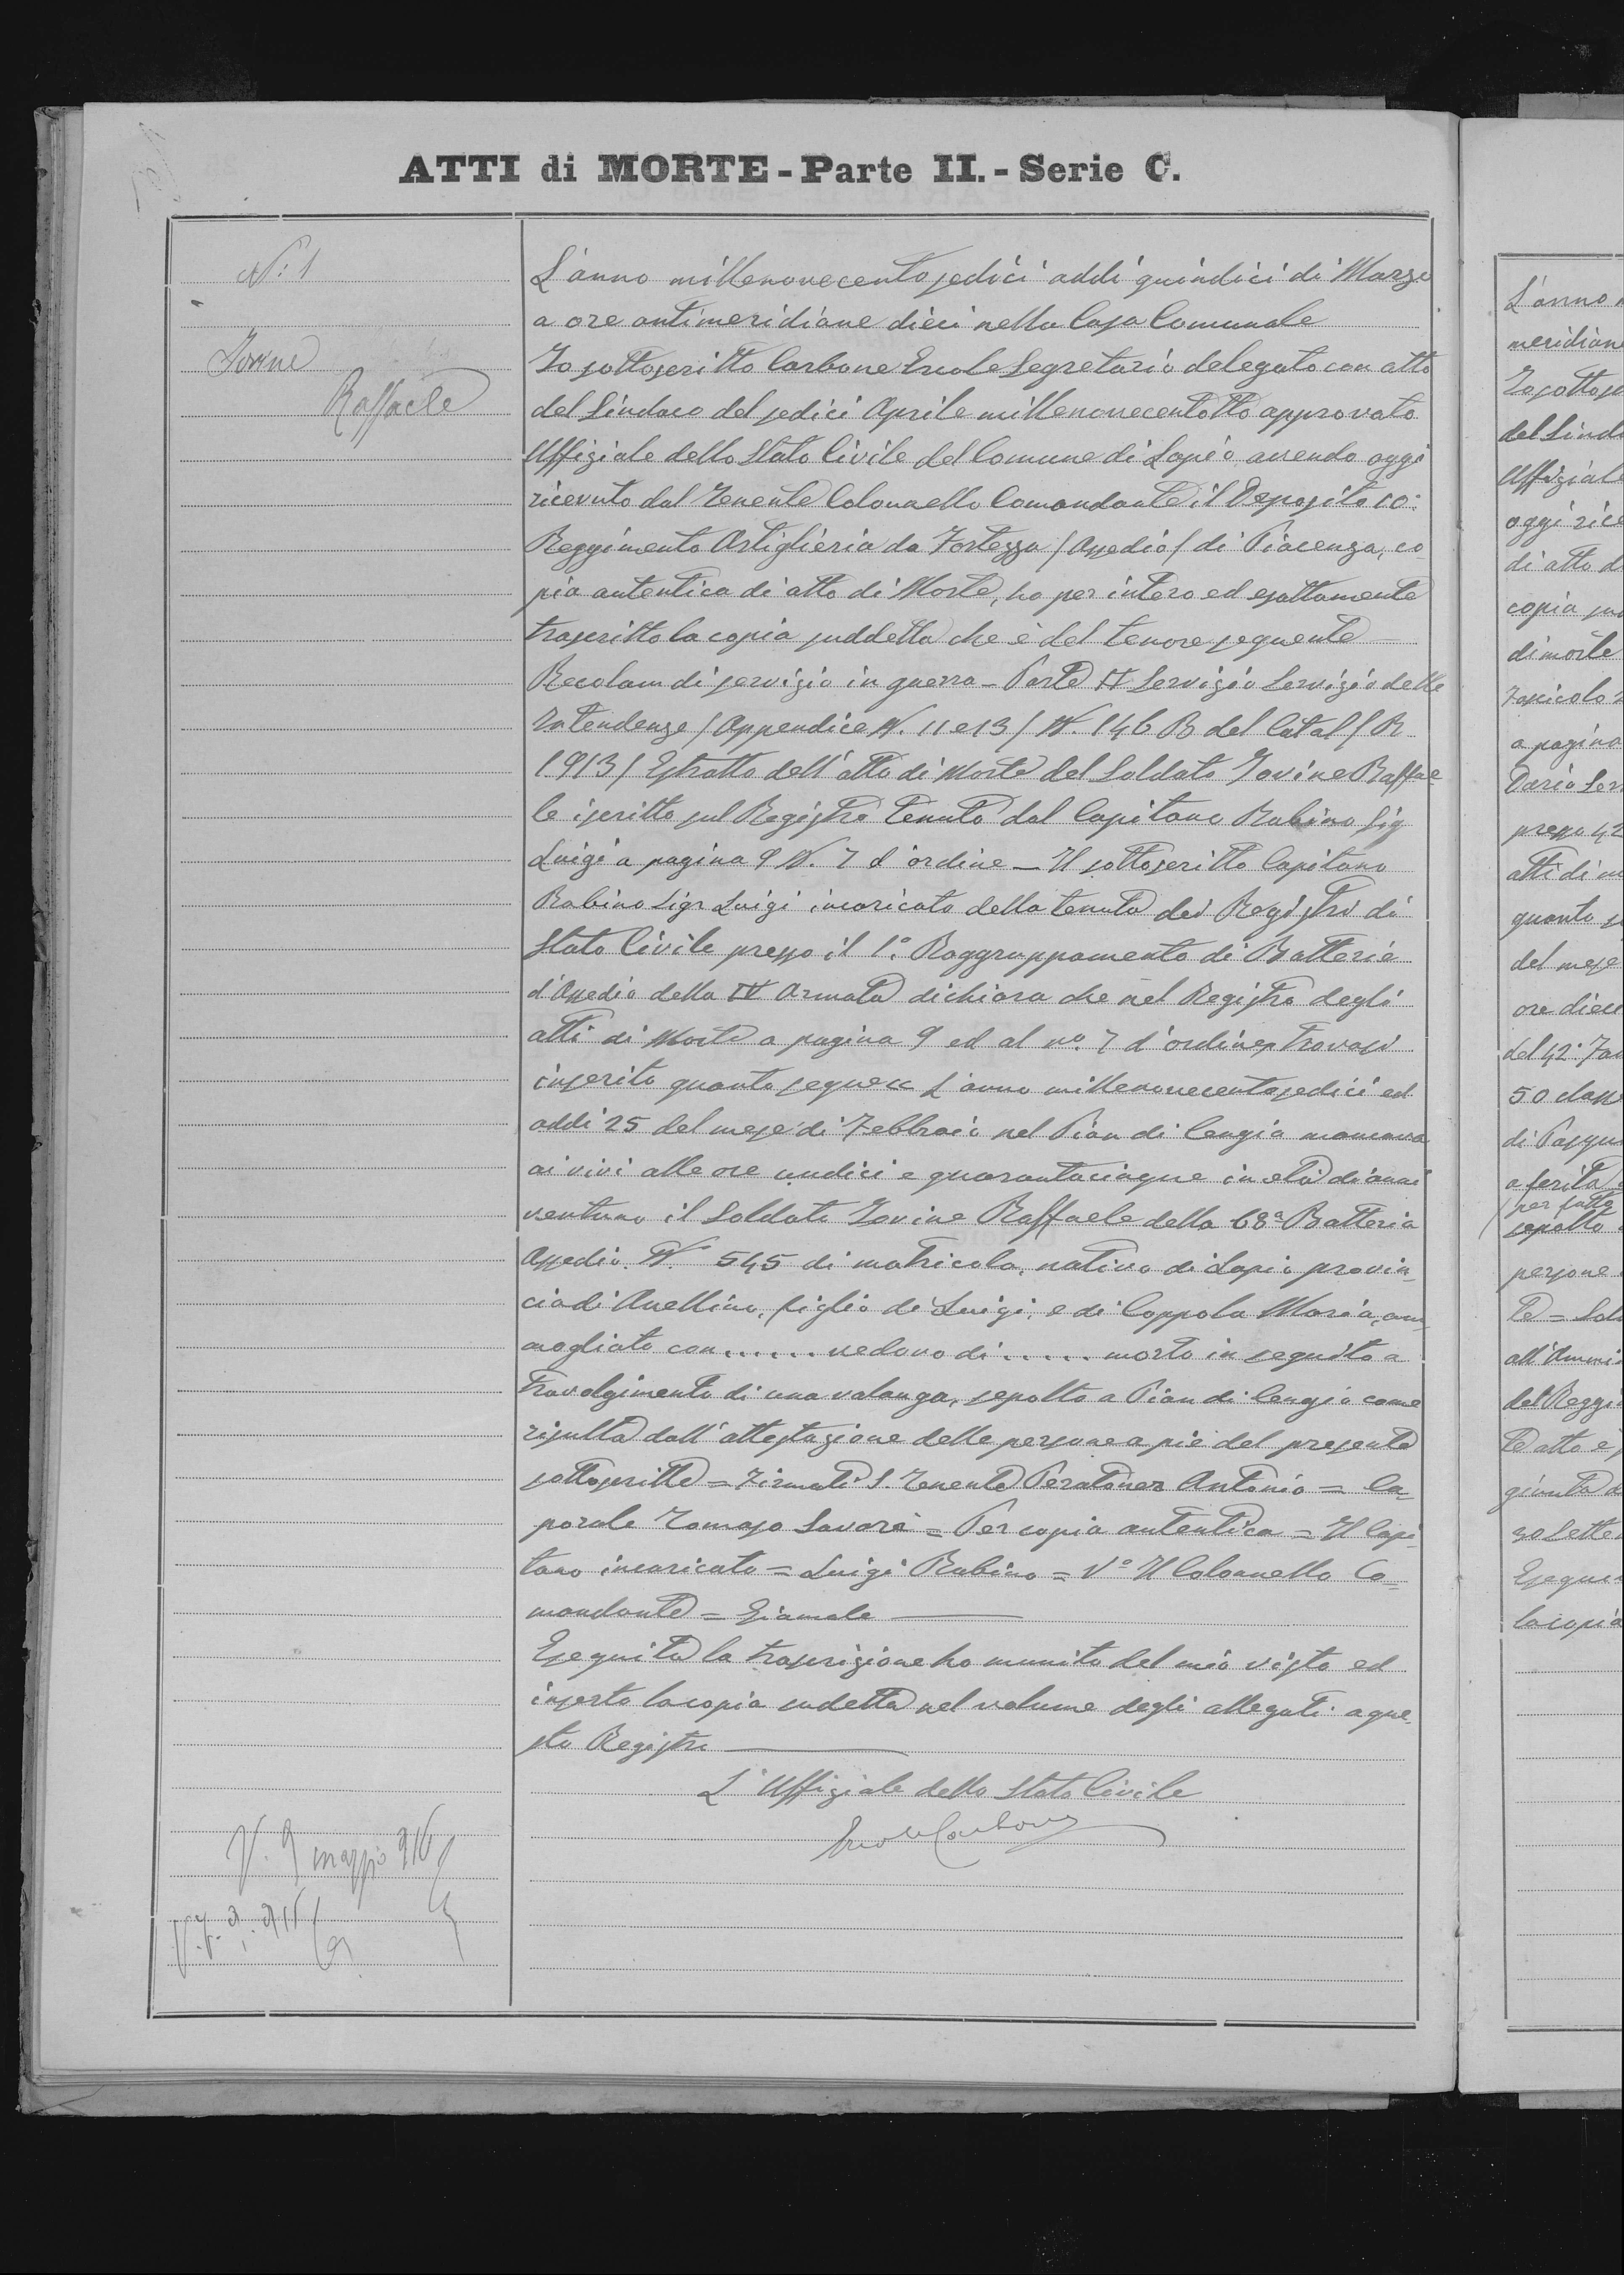 ATTI di MORTE - Parte II. - Serie C.
N: 1
Iovine
Raffaele
L'anno millenovecentosedici addi quindici di Marzo
a ore antimeridiane dieci nella Casa Comunale
Io sottoscritto Carbone Ercole Segretario delegato con atto
del Sindaco del sedici Aprile millenovecentotto approvato
Uffiziale dello Stato Civile del Comune di Lapio avendo oggi
ricevuto dal Tenente Colonnello Comandante il Deposito 10:
Reggimento Artiglieria da Fortezza / Assedio / di Piacenza, co-
pia autentica di atto di Morte, ho per intero ed esattamente
trascritto la copia suddetta che è del tenore seguente
di servizio in guerra - Parte II Servizio Servizio delle
Intendenze / Appendice N. 11 e 13 / N. 146 B del Catal / R
1913 / Estratto dell'atto di Morte del Soldato Iovine Raffae-
le iscritto sul Registro tenuto dal Capitano Rubino Sig
Luigi a pagina 9 N. 7 d'ordine - Il sottoscritto Capitano
Rubino Sigr Luigi incaricato della tenuta dei Registri di
Stato Civile presso il 1° Raggruppamento di Batterie
d'Assedio della IV Armata dichiara che nel Registro degli
atti di Morte a pagina 9 ed al no. 7 d'ordine trovasi
inserito quanto segue « L'anno millenovecentosedici ed
addi 25 del mese di Febbraio nel Pian di Cengia mancava
ai vivi alle ore undici e quarantacinque in età di anni
ventuno il Soldato Iovine Raffaele della 68a Batteria
Assedio. N° 545 di matricola, nativo di Lapio provin-
cia di Avellino, figlio di Luigi, e di Coppola Maria, am-
mogliato con ...... vedovo di ..... morto in seguito a
travolgimento di una valanga, sepolto a Pian di Cengia come
risulta dall'attestazione delle persone a piè del presente
sottoscritte = Firmati S. Tenente Antonio = Ca-
porale Tomaso Savare = Per copia autentica = Il Capi-
tano incaricato = Luigi Rubino = V° Il Colonnello Co-
mandante =
Eseguita la trascrizione ho munito del mio visto ed
inserto la copia sudetta nel volume degli allegati a que-
sto Registro
L'Uffiziale dello Stato Civile
Ercole Carbone
V. 9 maggio 916
L'anno
meridiane
Io sottos
del Sinda
Uffiziale
oggi rice
di atto d
copia
di morte
a pagina
Dario Ser
presso 42
atti di m
quanto
del mese
ore
del 42°
50
di
a ferita
per
sepolto
persone
te = Sol
all'Ammi
del Reggi
te atto è
giunta
so Sette
Esegui
la copia